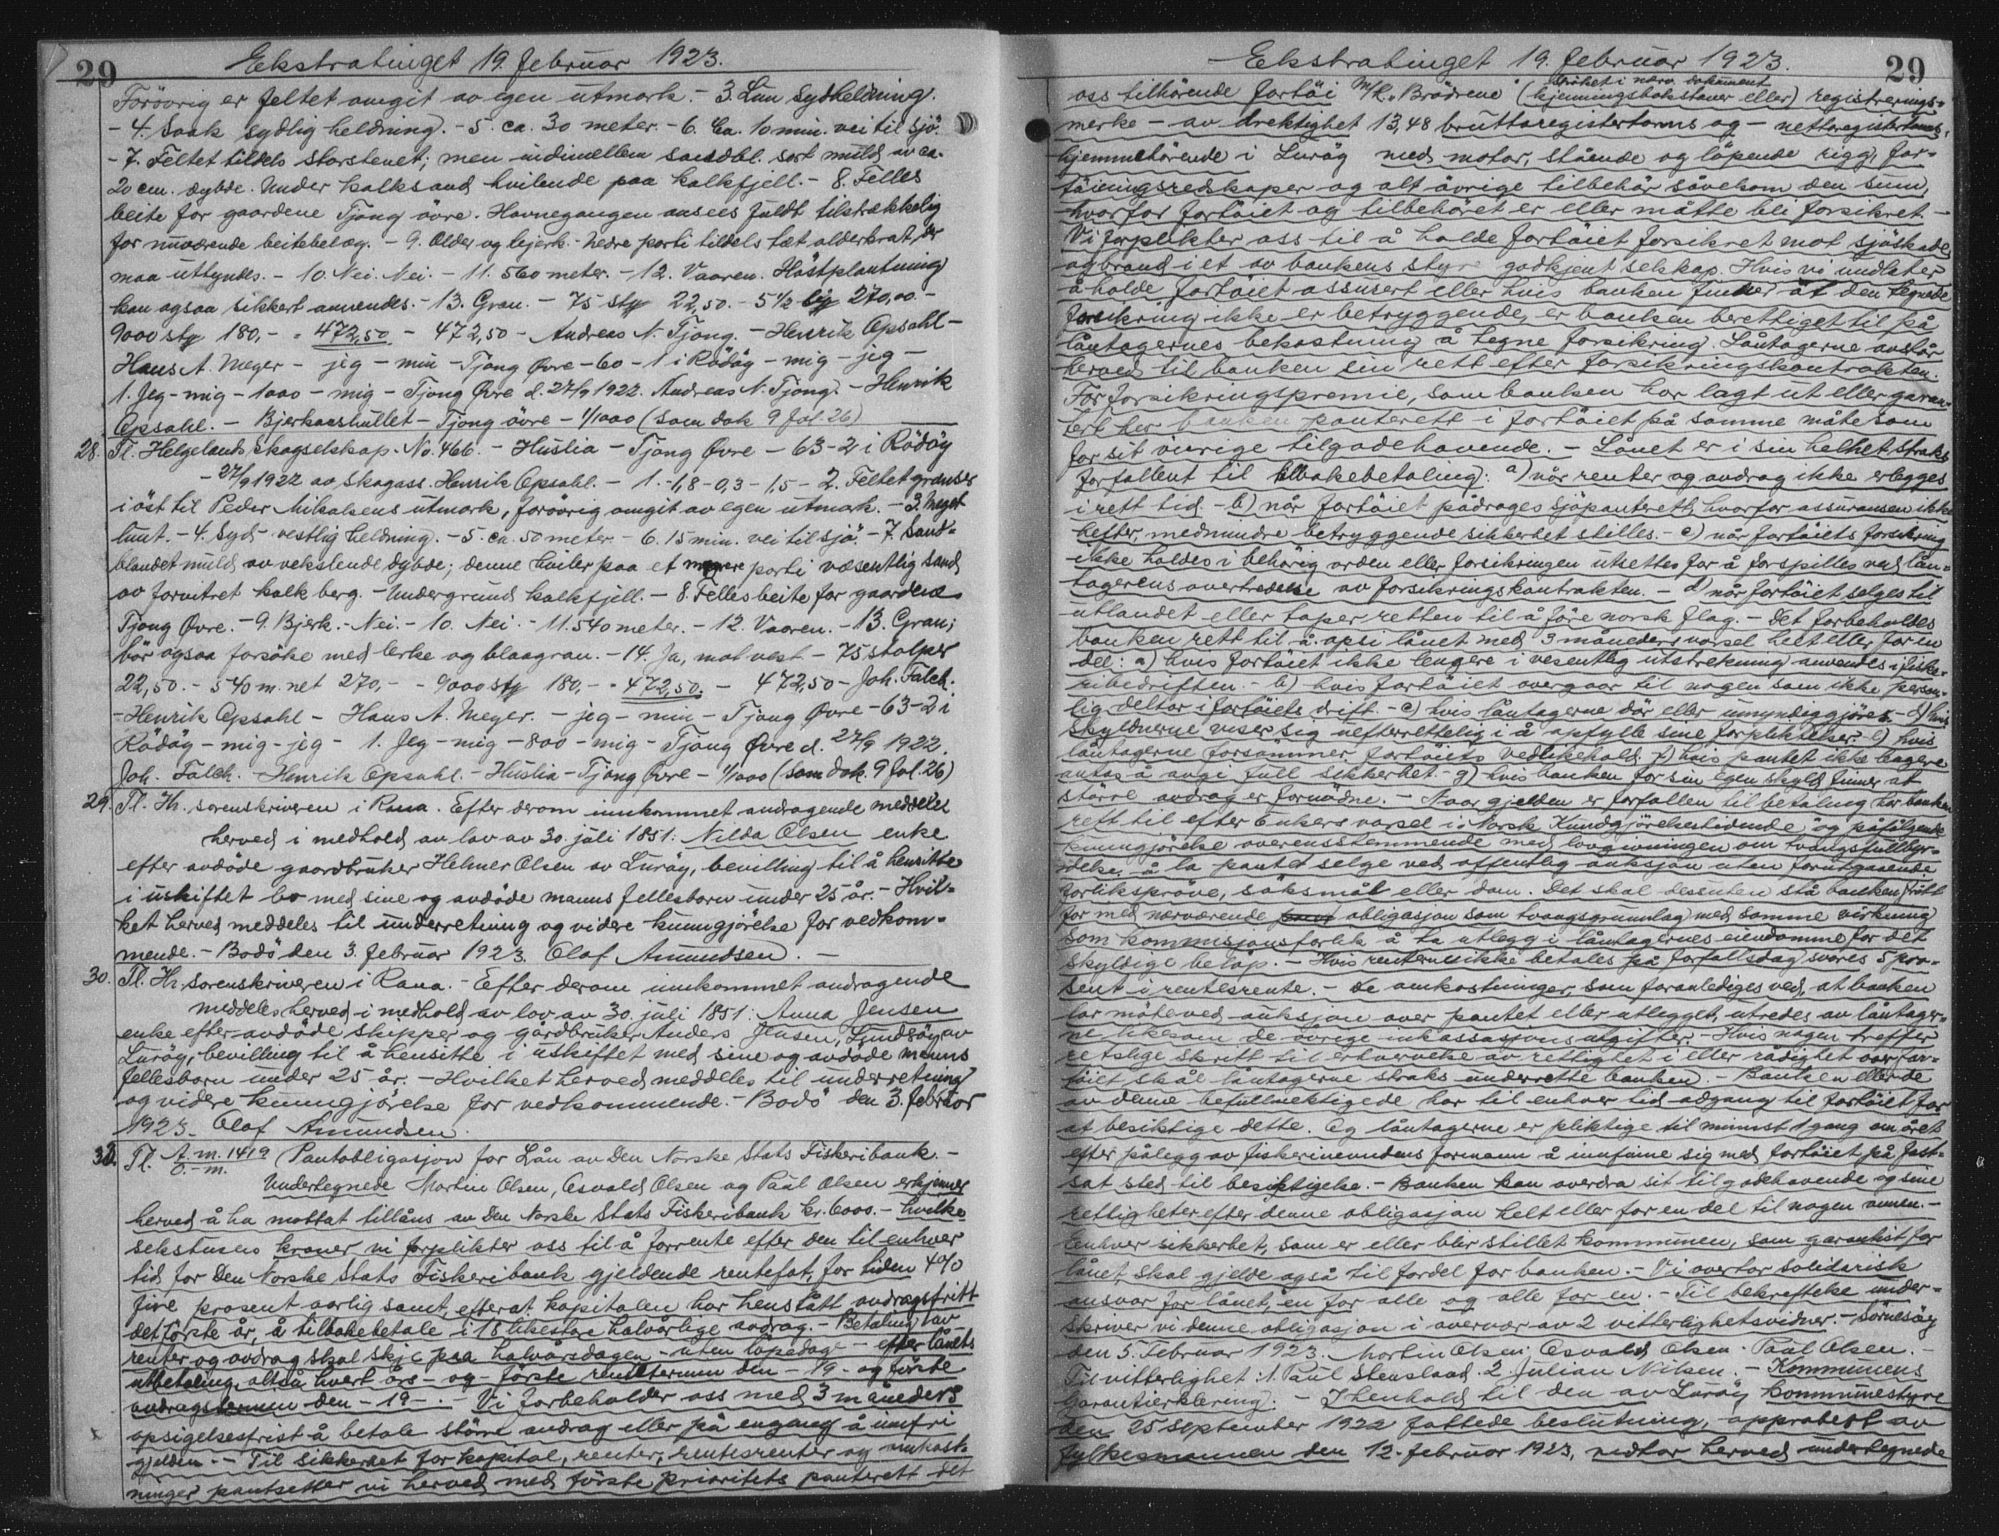 29
Ekstratinget 19. februar 1923.
Forövrig er feltet omgit av egen utmark. - 3. Lun sydheldning.
- 4. Svak sydlig heldning. - 5. ca. 30 meter. - 6. Ca. 10 min. vei til sjö.
- 7. Feltet tildels storstenet; men indimellem sandbl. sort muld av ca.
20 cm. dybde. Under kalksand hvilende paa kalkfjell. - 8. Felles
beite for gaardene Tjong övre. Havnegangen ansees fuldt tilstrækkelig
for nuværende beitebelæg. - 9. Older og bjerk. - Nedre parti tildels tæt olderkrat, der
maa uttyndes. - 10. Nei. Nei. - 11. 560 meter. - 12. Vaaren. Höstplantning
kan ogsaa sikkert anvendes. - 13. Gran. - 75 stg 22,50. - 5½ 270,00. -
9000 stg 180,- = 472,50 - 472,50 - Andreas N. Tjong. - Henrik Opsahl -
Hans A. Meyer - jeg - min - Tjong Övre - 60 - 1 i Rödöy - mig - jeg -
1. Jeg - mig - 1000 - mig - Tjong Övre d. 27/9 1922. Andreas N. Tjong. - Henrik
Opsahl. - Bjerkaashullet - Tjong övre - 1/1000 (som dok 9 fol. 26)
28. Tl. Helgeland Skogselskap. No. 466. - Huslia - Tjong Övre - 63 - 2 i Rödöy
- 27/9 1922 av skogass. Henrik Opsahl. - 1. - 1,8 - 0,3 - 1,5 - 2. Feltet grænser
i öst til Peder Mikalsens utmark, forövrig omgit av egen utmark. - 3. Meget
lunt. - 4. Syd-vestlig heldning. - 5. ca. 50 meter. - 6. 15 min. vei til sjö. - 7. Sand-
blandet muld av vekslende dybde; denne hviler paa et parti væsentlig sand
av forvitret kalkberg. - Undergrund kalkfjell. - 8. Fellesbeite for gaardene
Tjong Övre. - 9. Bjerk. - Nei. - 10. Nei. - 11. 540 meter. - 12. Vaaren. - 13. Gran;
bör ogsaa forsöke med lerke og blaagran. - 14. Ja, mot vest - 75 stolper
22,50. - 540 m. net 270,- - 9000 stg 180,- = 472,50. - 472,50 - Joh. Falch.
- Henrik Opsahl - Hans A. Meyer. - jeg - min - Tjong Övre - 63-2 i
Rödöy - mig - jeg - 1. Jeg - mig - 800 - mig - Tjong Övre d. 27/9 1922.
Joh. Falch. - Henrik Opsahl. - Huslia - Tjong Övre - 1/1000 (som dok. 9 fol. 26)
29. Tl. Hr. sorenskriveren i Rana. Efter derom innkommet andragende meddeles
herved i medhold av lov av 30 juli 1851: Nilda Olsen enke
efter avdöde gaardbruker Helmer Olsen av Luröy, bevilling til å hensitte
i uskiftet bo med sine og avdöde manns fellesbarn under 25 år. - Hvil-
ket herved meddeles til underretning og videre kunngjörelse for vedkom-
mende. - Bodö den 3. februar 1923. Olaf Amundsen. -
30. Tl. Hr. sorenskriveren i Rana. - Efter derom innkommet andragende
meddeles herved i medhold av lov av 30. juli 1851: Anna Jensen
enke efter avdöde skipper og gårdbruker Anders Jensen, Lundöy av
Luröy, bevilling til å hensitte i uskiftet med sine og avdöde manns
fellesbarn under 25 år. - Hvilket herved meddeles til underretning
og videre kunngjörelse for vedkommende. - Bodö den 3. februar
1923. Olaf Amundsen.
Tl. A. m. 1419 Pantobligasjon for Lån av Den Norske Stats Fiskeribank. -
O. - m.
Undertegnede Martin Olsen, Osvald Olsen og Paul Olsen erkjenner
herved å ha mottat tillåns av Den Norske Stats Fiskeribank kr. 6000. - hvilke
sekstusen kroner vi forplikter oss til å forrente efter den til enhver
tid for Den Norske Stats Fiskeribank gjeldende rentefot, for tiden 4%
fire prosent aarlig samt, efterat kapitalen har henstått avdragsfritt
det förste år, å tilbakebetale i 18 likestore halvårlige avdrag. - Betaling av
renter og avdrag skal skje paa halvårsdagen - uten löpedage - efter lånets
utbetaling, altså hvert års - og - förste rentetermin den - 19 - og förste
avdragstermin den - 19 -. Vi forbeholder oss med 3 måneders
opsigelsesfrist å betale större avdrag eller på engang å innfri
gjelden. - Til sikkerhet for kapital, renter, rentesrenter og omkost-
ninger pantsetter vi herved med förste prioritets panterett det
29
Ekstratinget 19. februar 1923.
oss tilhörende fartöi M/K "Brödrene" (kjenningsbokstaver eller) registrerings-
ströket i nærv. dokument
merke - av drektighet 13,48 bruttoregistertonns og - nettoregistertonns,
hjemmehörende i Luröy med motor, stående og löpende rigg, for-
töiningsredskaper og alt övrige tilbehör såvelsom den sum,
hvorfor fartöiet og tilbehöret er eller måtte bli forsikret. -
Vi forplikter oss til å holde fartöiet forsikret mot sjöskade
og brand i et av bankens styre godkjent selskap. Hvis vi undlater
å holde fartöiet assurert eller hvis banken finner at den tegnede
forsikring ikke er betryggende, er banken berettiget til på
låntagernes bekostning å tegne forsikring. Låntagerne avstår
herved til banken sin rett efter forsikringskontrakten.
For forsikringspremie, som banken har lagt ut eller garan-
tert har banken panterett i fartöiet på samme måte som
for sit övrige tilgodehavende. - Lånet er i sin helhet straks
forfallent til tilbakebetaling: a) når renter og avdrag ikke erlegges
i rett tid - b) når fartöiet pådrages sjöpanterett, hvorfor assuransen ikke
hefter, medmindre betryggende sikkerhet stilles. - c) når fartöiets forsikring
ikke holdes i behörig orden eller forsikringen utsettes for å forspilles ved lån-
tagerens overtredelse av forsikringskontrakten. - d) når fartöiet selges til
utlandet eller taper retten til å före norsk flag. - Det forbeholdes
banken rett til å opsi lånet med 3 måneders varsel helt eller for en
del: a) hvis fartöiet ikke lengere i vesentlig utstrekning anvendes i fiske-
ribedriften - b) hvis fartöiet overgaar til nogen som ikke person-
lig deltar i fartöiets drift - c) hvis låntagerne dör eller umyndiggjöres - d) hvis
skyldnerne viser sig uefterrettelig i å opfylle sine forpliktelser - e) hvis
låntagerne forsömmer fartöiets vedlikehold. f) hvis pantet ikke lengere
antas å avgi full sikkerhet - g) hvis banken for sin egen skyld finner at
större avdrag er fornödne. - Naar gjelden er forfallen til betaling har banken
rett til efter 6 ukers varsel i "Norsk Kundgjörelsestidende" og påfölgende
kunngjörelse overensstemmende med lovgivningen om tvangsfullbyr-
delse, å la pantet selge ved offentlig auksjon uten forutgaaende
forlikspröve, söksmål eller dom. Det skal dessuten stå banken fritt
for med nærværende obligasjon som tvangsgrunnlag med samme virkning
som kommisjonsforlik å ta utlegg i låntagernes eiendomme for det
skyldige belöp. - Hvis renterne ikke betales på forfallsdag svares 5 pro-
sent i rentesrente. - De omkostninger, som foranlediges ved, at banken
lar möte ved auksjon over pantet eller utlegget, utredes av låntager-
ne likesom de övrige inkassasjonsutgifter. - Hvis nogen treffer
retslige skritt til erhvervelse av rettighet i eller rådighet over far-
töiet skal låntagerne straks underrette banken. - Banken eller de
av denne befullmektigede har til enhver tid adgang til fartöiet for
at besiktige dette. Og låntagerne er pliktige til minnst 1 gang om året
efter pålegg av fiskerinevndens formann å innfinne sig med fartöiet på fast-
sat sted til besiktigelse. - Banken kan overdra sit tilgodehavende og sine
rettigheter efter denne obligasjon helt eller for en del til nogen annen. -
Enhver sikkerhet, som er eller blir stillet kommunen, som garantist for
lånet, skal gjelde også til fordel for banken. - Vi overtar solidarisk
ansvar for lånet, en for alle og alle for en. - Til bekreftelse under-
skriver vi denne obligasjon i overvær av 2 vitterlighetsvidner. - Sörnesöy
den 5. Februar 1923. Morten Olsen. Osvald Olsen. Paul Olsen. -
Til vitterlighet: 1. Paul Stensland. 2. Julian Nilsen. - Kommunens
Garantierklering: - I henhold til den av Luröy kommunestyre
den 25 september 1922 fattede beslutning, approbert av
fylkesmannen den 12. februar 1923, vedtar herved undertegnede